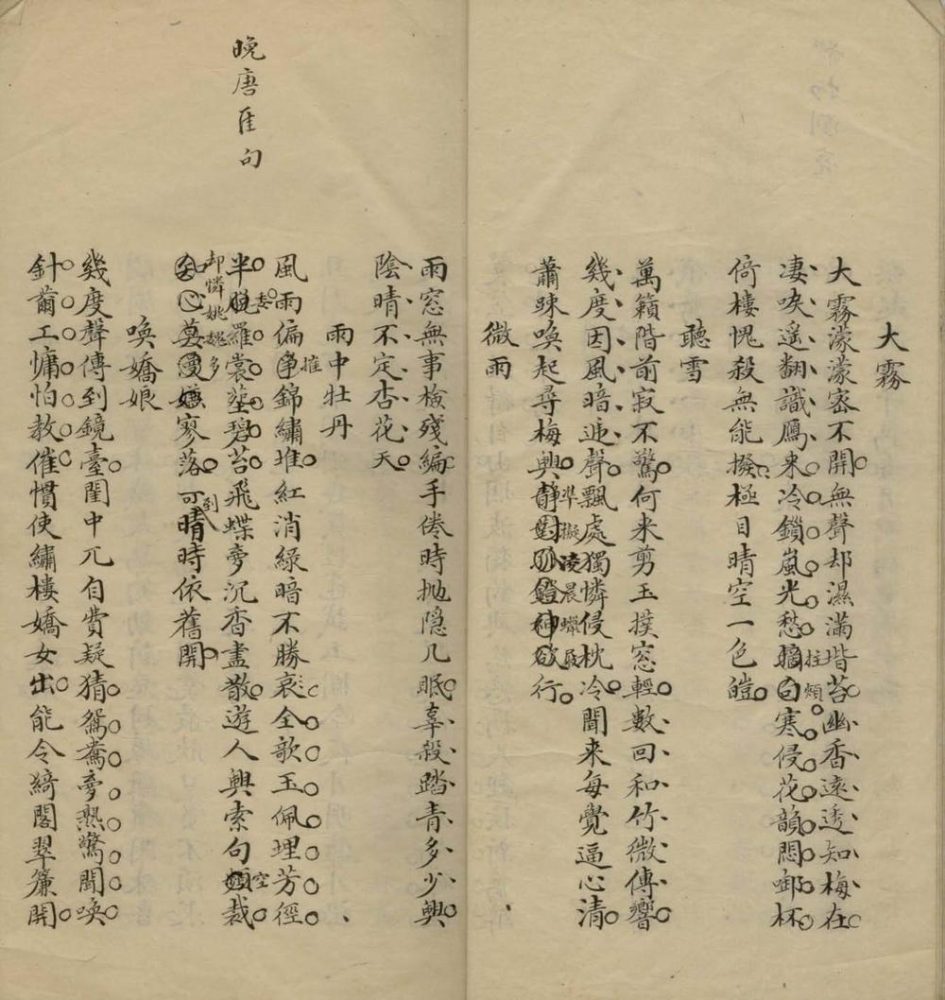 大霧
大霧濛濛密不開無聲却濕滿堦苔幽香遠透知梅在
凄唳遥翻識鴈来冷鎖嵐光愁拄頰寒侵花韻悶啣杯
倚樓愧殺無能撥極目晴空一色皚
聽雪
萬籟階前寂不驚何来剪玉撲窓輕數回和竹微傳響
幾度因風暗逓聲飄處獨憐侵枕冷聞来每覺逼心清
蕭疎喚起尋梅興準擬凌晨蠟屐行
微雨
雨窓無事檢殘編手倦時抛隐几眠辜殺踏青多少興
陰晴不定杏花天
雨中牡丹
風雨偏摧錦繡堆紅消綠暗不勝哀全歌玉佩埋芳徑
半脱羅裳委碧苔飛蝶夢沉香盡散遊人興索句空裁
却憐姚魏多寥落可到晴時依舊開
喚嬌娘
幾度聲傳到鏡臺閨中兀自費疑猜鴛鴦夢熟驚聞喚
針黹工慵怕教催慣使繡樓嬌女出能令綺閣翠簾開
晚唐佳句